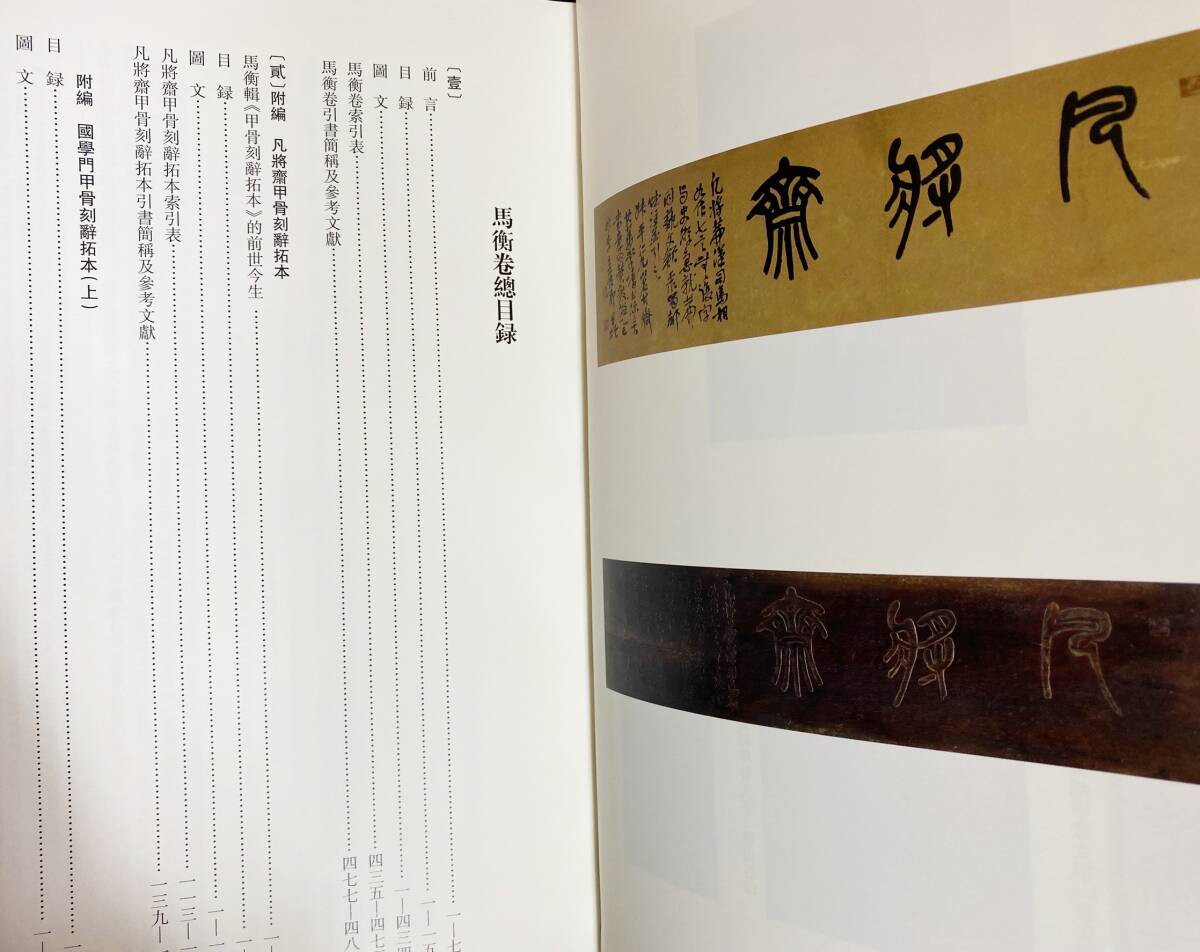 凡將齋
凡將齋漢司馬相
凡將齋
馬衡卷總目録
〔壹〕
前言……一—七
目録……一—一五
圖文……一—四三四
馬衡卷索引表……四三五—四七
馬衡卷引書簡稱及參考文獻……四七七—四八
〔貳〕附編 凡將齋甲骨刻辭拓本
馬衡輯《甲骨刻辭拓本》的前世今生……一—
目録……一—
圖文……一—一
凡將齋甲骨刻辭拓本索引表……一一三—一
凡將齋甲骨刻辭拓本引書簡稱及參考文獻……一三九—
附編 國學門甲骨刻辭拓本(上)
目録……一
圖文……一—